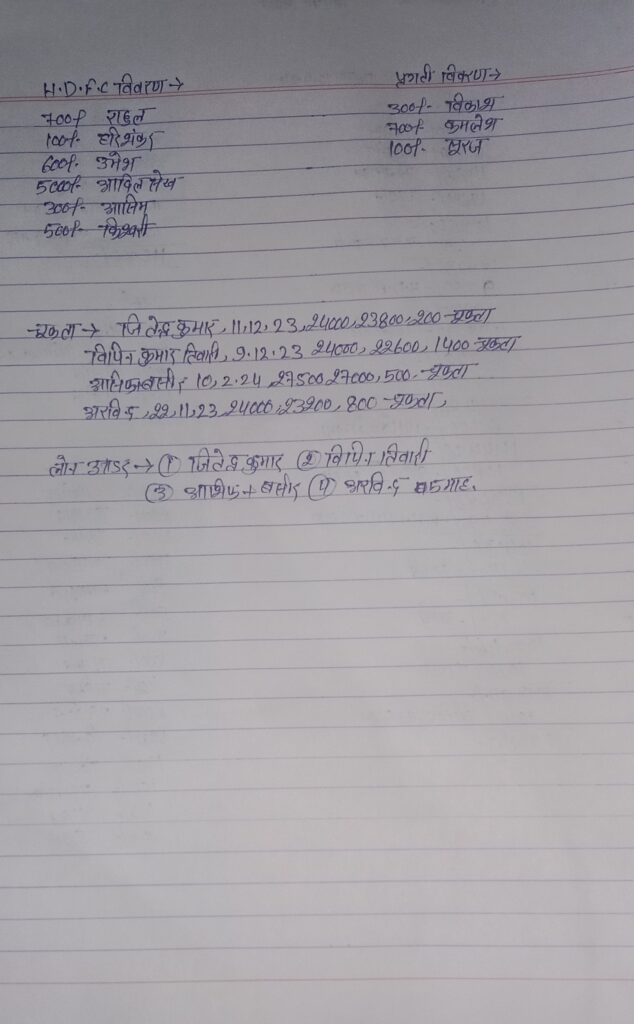 H.D.F.C विवरण →
700/- राहुल
100/- हरिशंकर
600/- उमेश
5000/- आदिल शेख
300/- आसिम
500/-
प्रगती विवरण →
300/- विकाश
700/- कमलेश
100/- सूरज
चुकता → जितेन्द्र कुमार, 11,12,23, 24000, 23800, 200 चुकता
विपिन कुमार तिवारी, 9.12.23 24000, 22600, 1400 चुकता
10,2.24, 27500, 27000, 500 - चुकता
अरविन्द, 22,11,23, 24000, 23200, 800 चुकता,
लोन → (1) जितेन्द्र कुमार (2) विपिन तिवारी
(3) आशिफ (4) अरविन्द